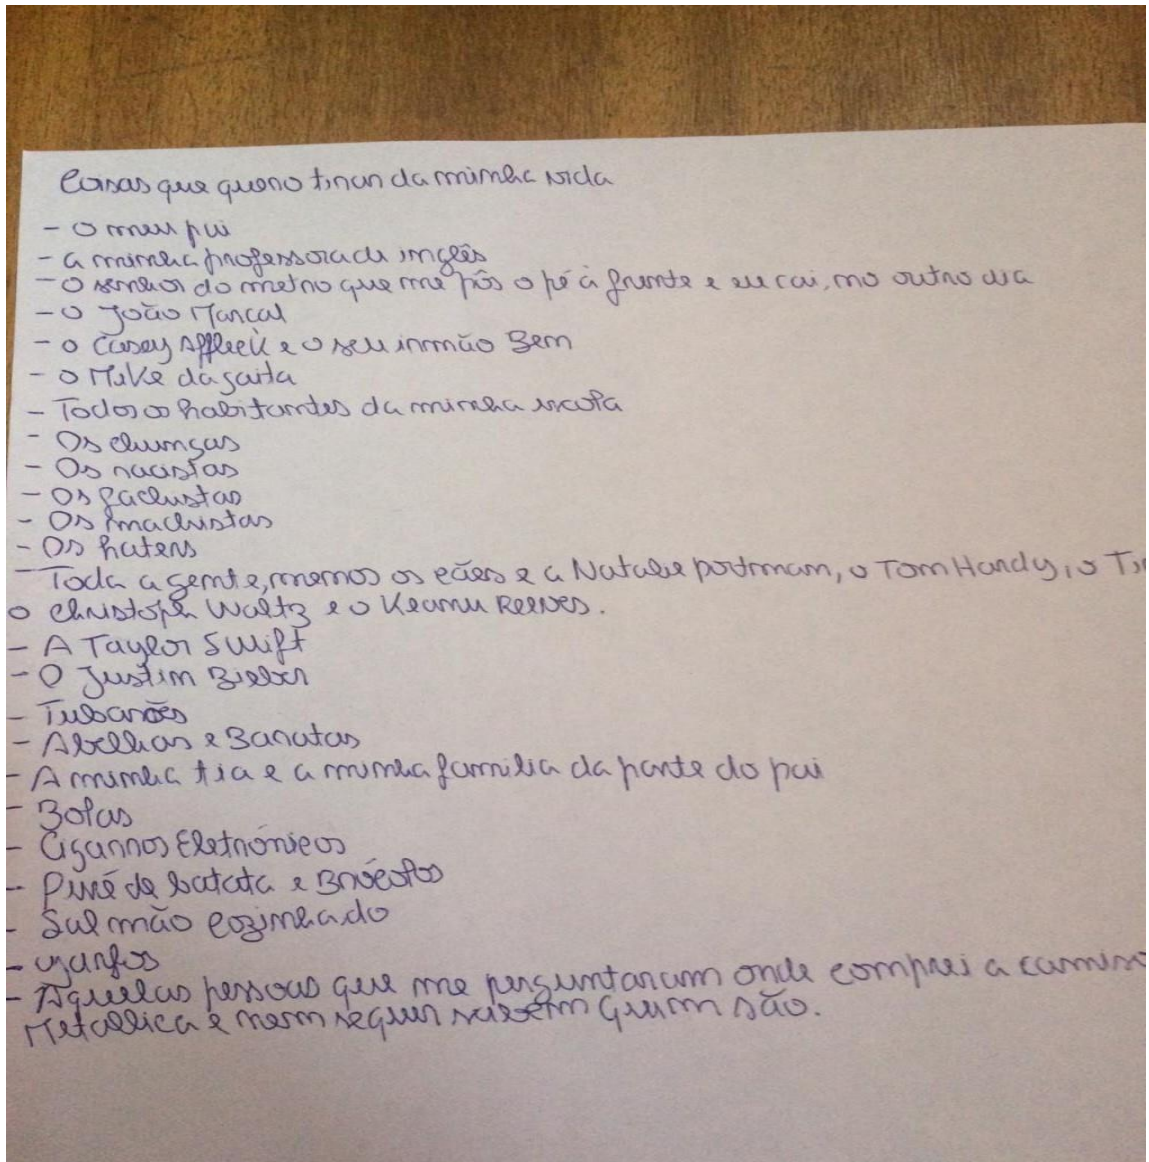 Coisas que quero tirar da minha vida
- O meu pai
- a minha professora de inglês
- O senhor do metro que me pôs o pé à frente e eu cai, no outro dia
- O João Marcal
- O Casey Affleck e o seu irmão Ben
- O Mike da gaita
- Todos os habitantes da minha escola
- Os chungas
- Os racistas
- Os fachistas
- Os machistas
- Os haters
- Toda a gente, menos os cães e a Natalie portman, o Tom Hardy, o
o Christoph Waltz e o Keanu Reeves.
- A Taylor Swift
- O Justin Bieber
- Tubarões
- Abelhas e Baratas
- A minha tia e a minha familia da parte do pai
- Bolas
- Cigarros Eletrónicos
- Puré de batata e Brócolos
- Salmão cozinhado
- garfos
- Aquelas pessoas que me perguntaram onde comprei a
Metallica e nem sequer sabem quem são.